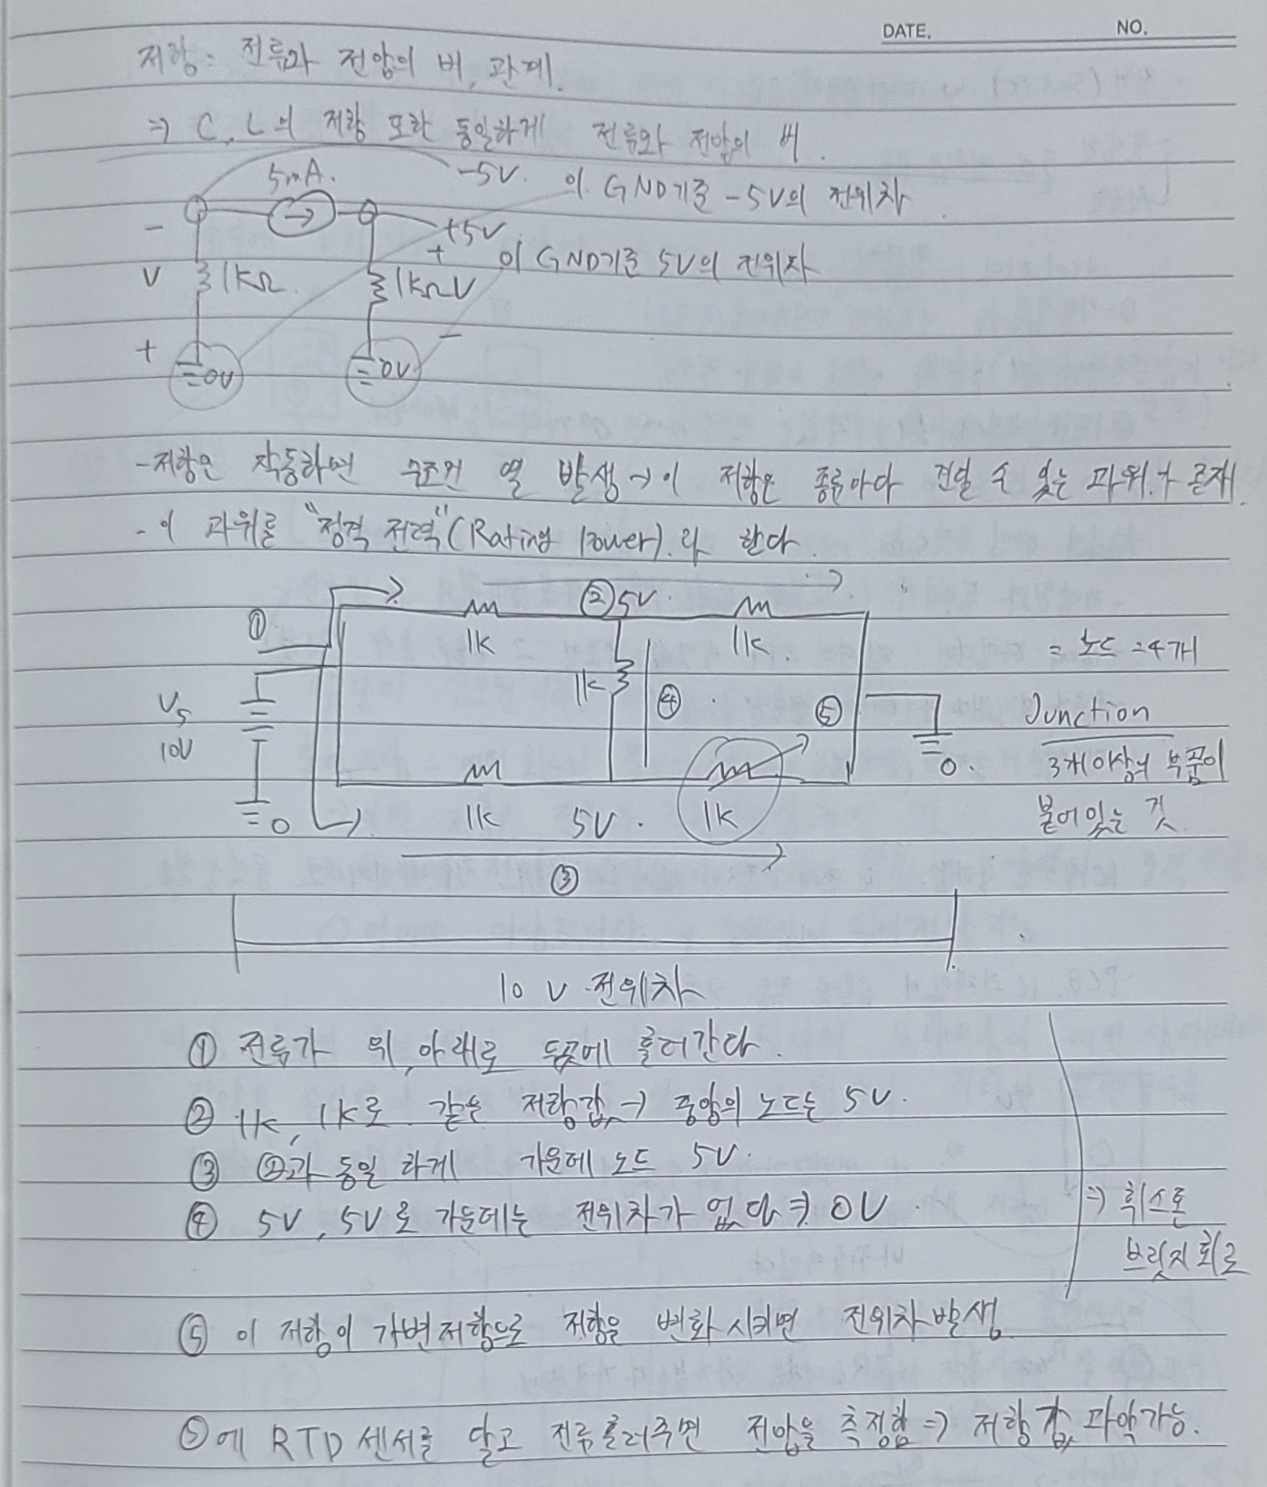 DATE. NO.
저항 : 전류와 전압의 비, 관계.
⇒ C, L의 저항 또한 동일하게 전류와 전압의 비.
5mA. -5V. 이 GND기준 -5V의 전위차
- +5V
+ 이 GND기준 5V의 전위차
V 1kΩ. 1kΩ V
+ 0V 0V -
-저항은 작동하면 무조건 열 발생→이 저항은 종류마다 견딜 수 있는 파워가 존재
-이 파워를 "정격 전력"(Rating Power)라 한다.
① ② 5V.
1k 1k. = 노드 = 4개
1k ④ ⑤
Vs Junction
10V 0. 3개이상의 부품이
0 1k 5V. 1k 붙어있는 것
③
10 V 전위차
① 전류가 위, 아래로 두곳에 흘러간다.
② 1k, 1k로 같은 저항값 → 중앙의 노드는 5V.
③ ②과 동일 하게 가운데 노드 5V.
④ 5V, 5V로 가운데는 전위차가 없다 즉 0V ⇒ 휘스톤
브릿지 회로
⑤ 이 저항이 가변저항으로 저항을 변화 시키면 전위차 발생
⑤에 RTD센서를 달고 전류흘려주면 전압을 측정함 ⇒ 저항 값 파악가능.